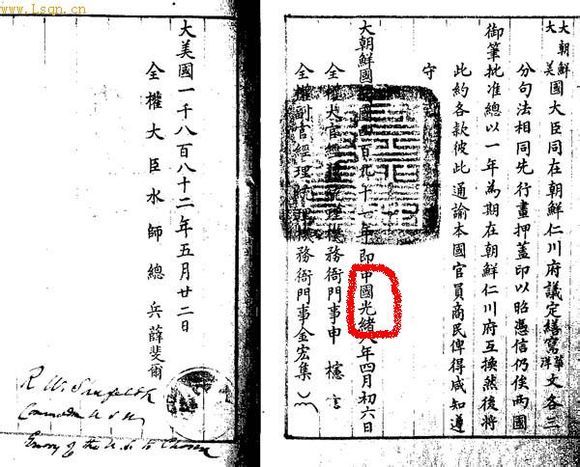 www.lsqn.cn
大朝鮮大美國大臣同在朝鮮仁川府議定繕寫華洋文各三
分句法相同先行畫押蓋印以昭憑信仍俟兩國
御筆批准總以一年為期在朝鮮仁川府互換然後將
此約各款彼此通諭本國官員商民俾得咸知遵
守
大朝鮮國國四百九十一年即中國光緒八年四月初六日
全權大官經理理機務衙門事申櫶
全權副官經理理機務衙門事金宏集
大美國一千八百八十二年五月廿二日
全權大臣水師總兵薛斐爾
R. W. Shufeldt
Commodore U.S.N.
Envoy of the U.S. to Chosen